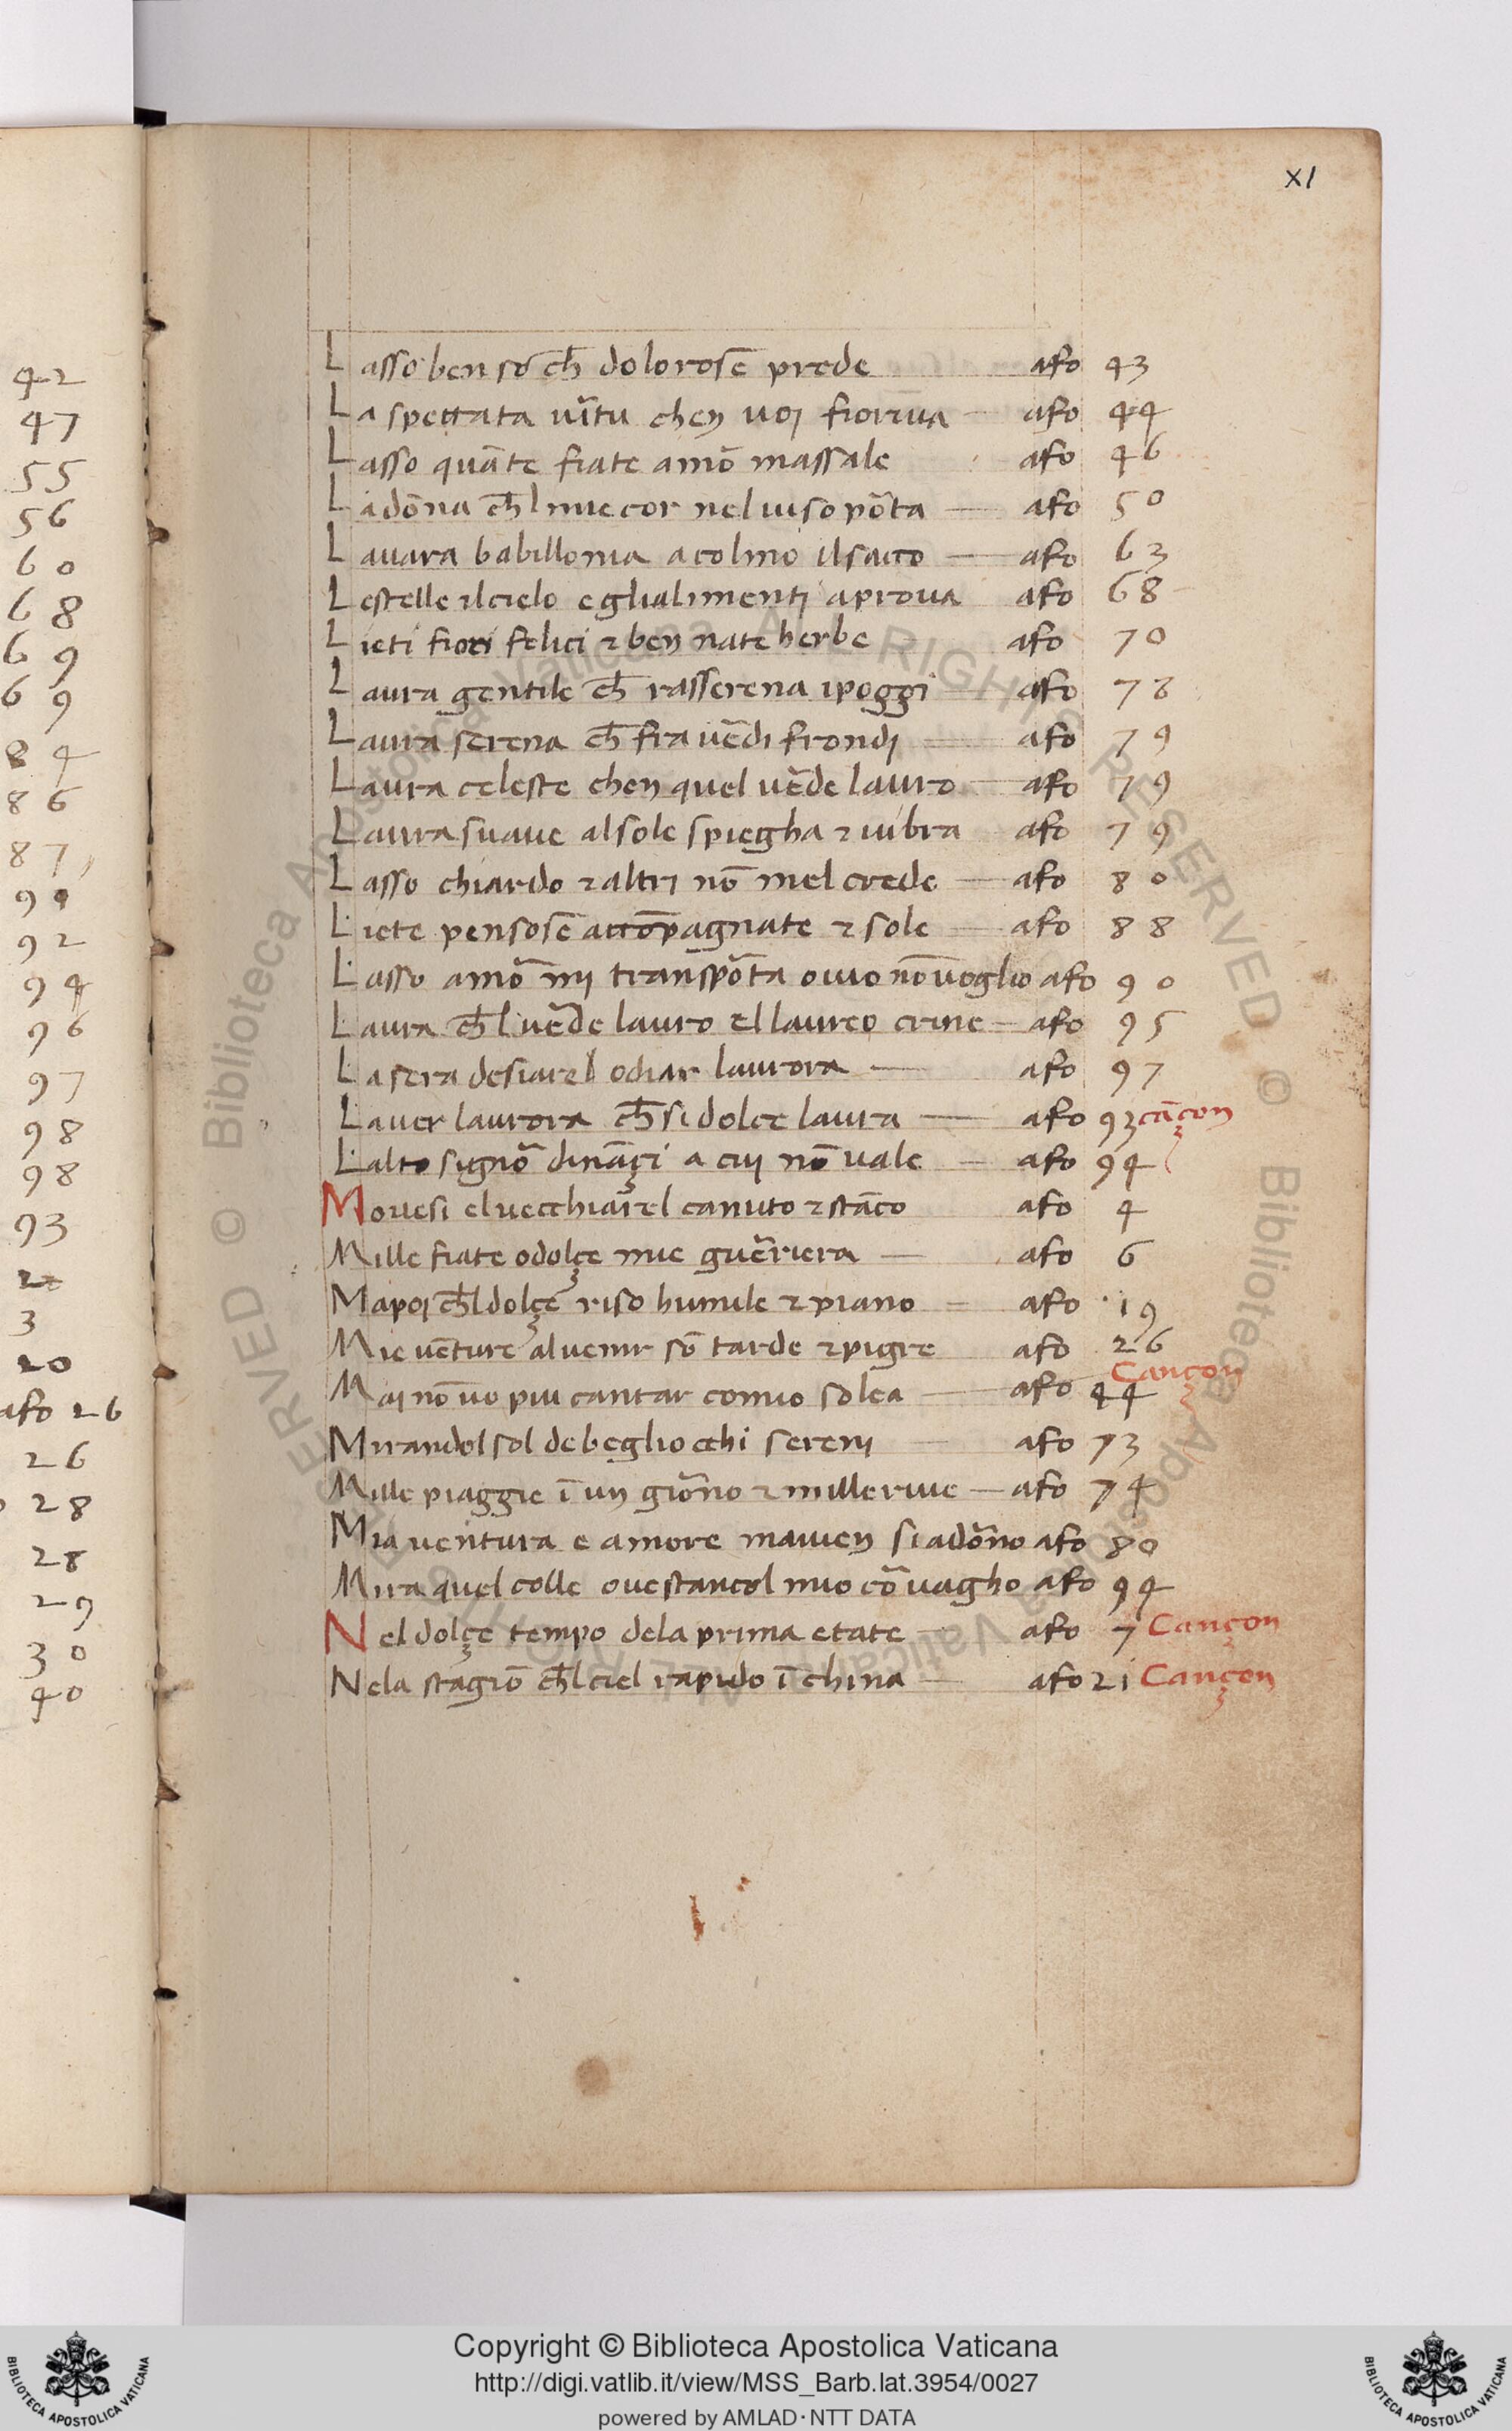 xı
42
47
55
56
60
68
69
69
84
86
87
90
92
94
96
97
98
98
93
3
20
afo 26
26
28
28
29
30
40
Lasso ben so ch̄ dolorose᷒ prede afo 43
La spettata v̄tu cheɲ voj fioriva afo 44
Lasso quāte fiate amō massale afo 46
La dōna ch̄l mie cor nel viso pōta afo 50
Lavara babillonia a colmo il sacco afo 63
Le stelle il cielo e gli alimentj aprova afo 68
Lieti fiori felici ⁊ ben nate herbe afo 70
Laura gentile ch̄ rasserena i poggi afo 78
Laura serena ch̄ fra vēdi frondj afo 79
Laura celeste chen quel vēde lauro afo 79
Laura suave al sole spiegha ⁊ vibra afo 79
Lasso chiardo ⁊ altrj nō mel crede afo 80
Liete pensosē accōpagnate ⁊ sole afo 88
Lasso amō mj transpōta ovio nō voglio afo 90
Laura ch̄l vēde lauro el laureo crine afo 95
La sera desiar el odiar laurora afo 97
Laver laurora ch̄ si dolce laura afo 93 cāçon
Lalto signō dināçi a cuj non vale afo 94
Movesi el vecchiarel canuto ⁊ stāco afo 4
Mille fiate o dolçe mie guēriera afo 6
Mapoj ch̄l dolçe riso humile ⁊ piano afo 19
Mie vēture al venir sō tarde ⁊ pigre afo 26
Maj nō vo piu cantar comio solea afo 44 Cançon
Mirandol sol de begliocchi serenj afo 73
Mille piaggie ī uɲ giōno ⁊ mille rive afo 74
Mia ventura e amore maveɲ si adōno afo 80
Mira quel colle o vestancol mio cō vagho afo 94
Nel dolçe tempo dela prima etate afo 7 Cançon
Nela stagiō ch̄l ciel rapido īchina afo 21 Cançon
© Biblioteca Apostolica Vaticana ALL RIGHTS RESERVED © Biblioteca Apostolica Vaticana ALL RIGHTS RESERVED
Copyright © Biblioteca Apostolica Vaticana
http://digi.vatlib.it/view/MSS_Barb.lat.3954/0027
powered by AMLAD·NTT DATA
BIBLIOTECA APOSTOLICA VATICANA
BIBLIOTECA APOSTOLICA VATICANA